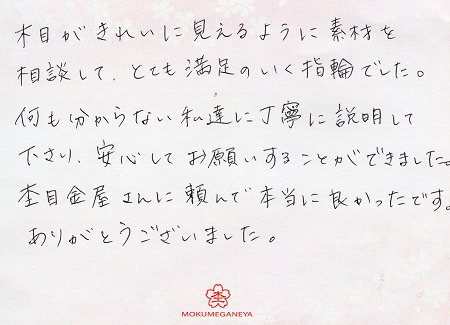 木目がきれいに見えるように素材を
相談して、とても満足のいく指輪でした。
何も分からない私達に丁寧に説明して
下さり、安心してお願いすることができました。
杢目金屋さんに頼んで本当に良かったです。
ありがとうございました。
杢
MOKUMEGANEYA